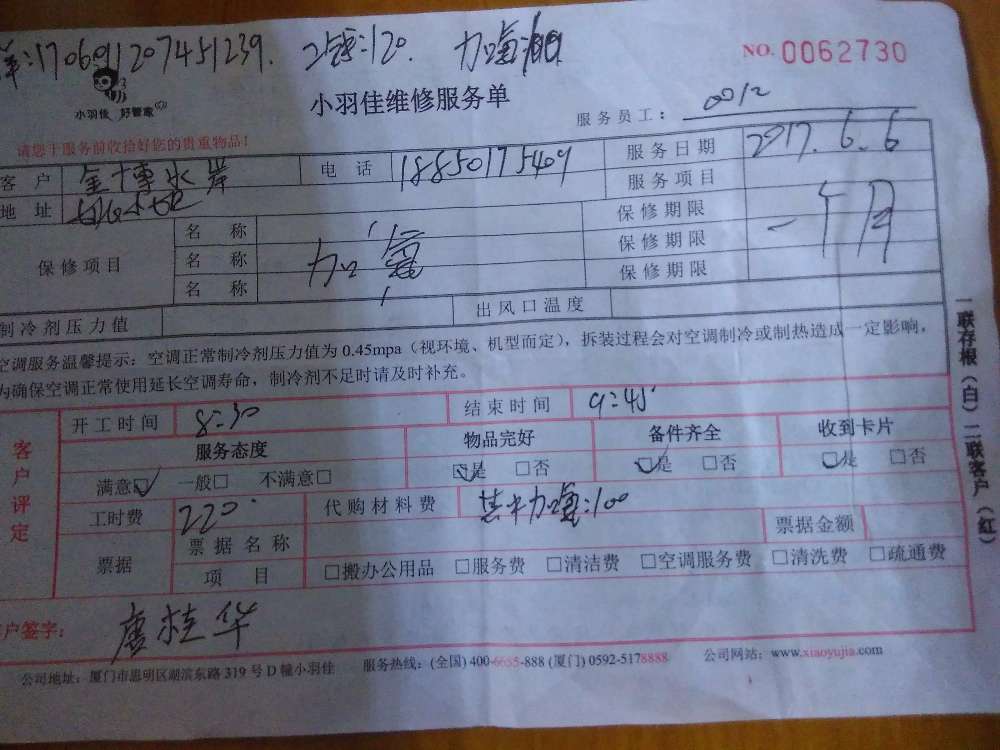 单:170691207451239. 2线:120. 加氟:100
NO. 0062730
小羽佳 好管家
小羽佳维修服务单
服务员工: 0012
请您于服务前收拾好您的贵重物品!
客 户 金博水岸 电 话 18850175409 服务日期 2017.6.6
地 址 服务项目
保修项目 名 称 保修期限
名 称 加氟 保修期限 一个月
名 称 保修期限
制冷剂压力值 出风口温度
空调服务温馨提示:空调正常制冷剂压力值为 0.45mpa(视环境、机型而定),拆装过程会对空调制冷或制热造成一定影响,
为确保空调正常使用延长空调寿命,制冷剂不足时请及时补充。
客户评定
开工时间 8:30 结束时间 9:45
服务态度 物品完好 备件齐全 收到卡片
满意☑ 一般□ 不满意□ ☑是 □否 ☑是 □否 ☑是 □否
工时费 220 代购材料费 其中加氟:100
票据 票据名称 票据金额
项 目 □搬办公用品 □服务费 □清洁费 □空调服务费 □清洗费 □疏通费
客户签字: 唐桂华
公司地址:厦门市思明区湖滨东路 319 号 D 幢小羽佳 服务热线:(全国) 400-6655-888 (厦门) 0592-5178888 公司网站:www.xiaoyujia.com
一联存根(白)二联客户(红)